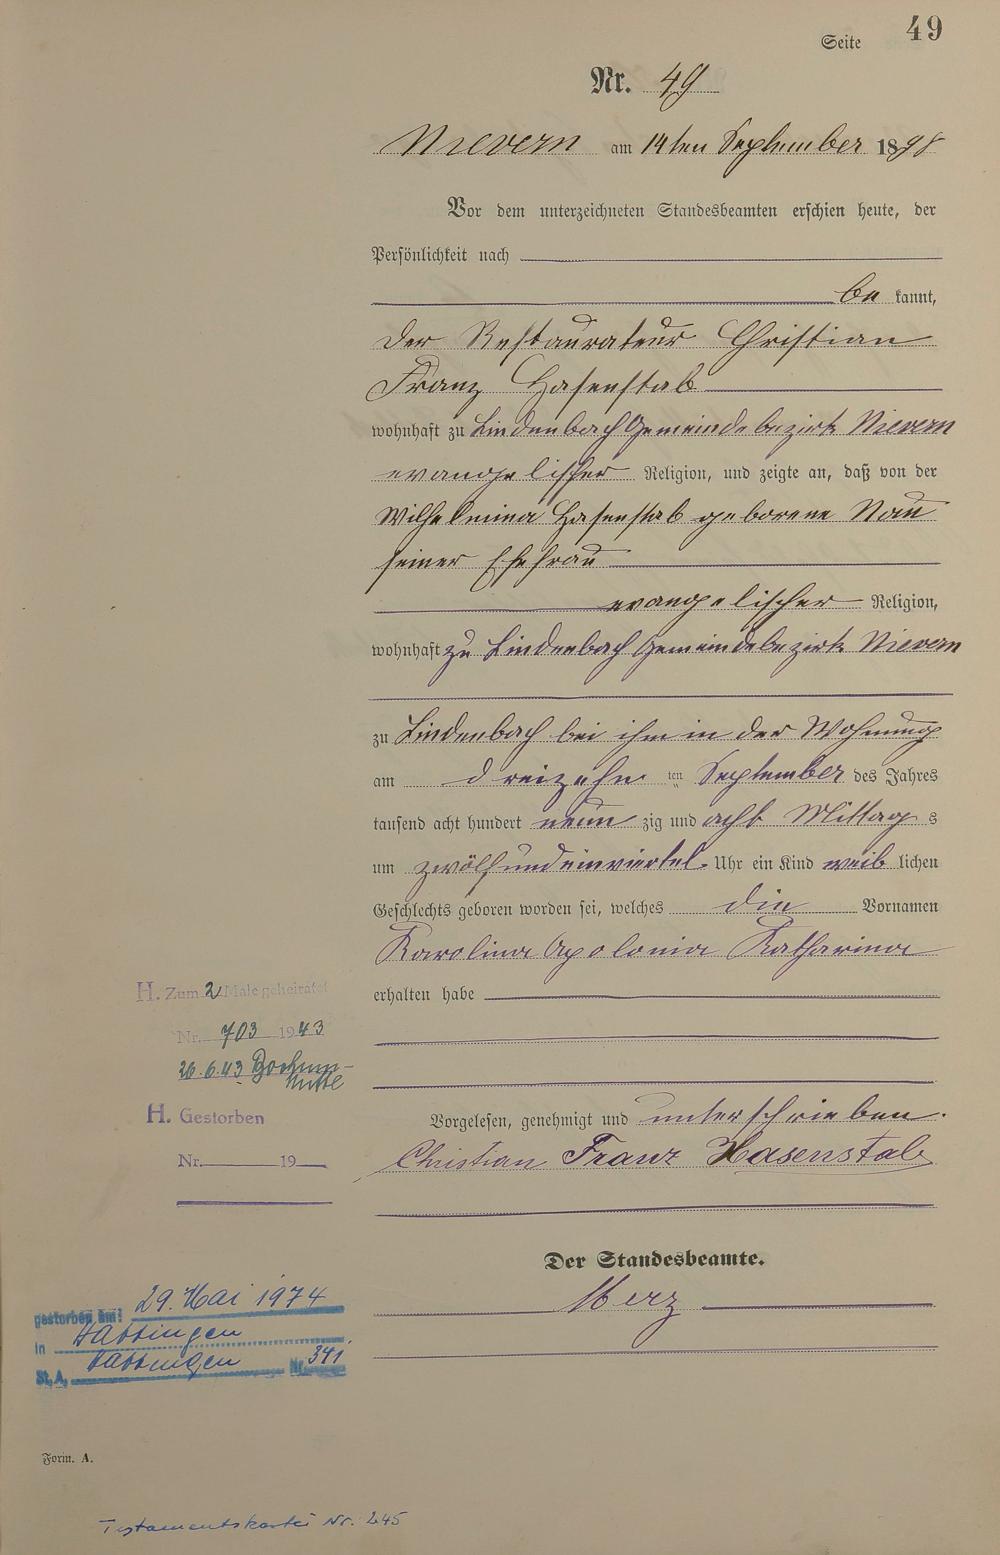 Seite 49
Nr. 49
Nievern am 14ten September 1898
Vor dem unterzeichneten Standesbeamten erschien heute, der
Persönlichkeit nach
be kannt,
der Restaurateur Christian
Franz Hasenstab
wohnhaft zu Lindenbach Gemeindebezirk Nievern
evangelischer Religion, und zeigte an, daß von der
Wilhelmina Hasenstab geborene Nau
seiner Ehefrau
evangelischer Religion,
wohnhaft zu Lindenbach Gemeindebezirk Nievern
zu Lindenbach bei ihm in der Wohnung
am dreizehn ten September des Jahres
tausend acht hundert neun zig und acht Mittag s
um zwölfundeinviertel Uhr ein Kind weib lichen
Geschlechts geboren worden sei, welches die Vornamen
Karolina Apolonia Katharina
erhalten habe
H. Zum 2 Male geheiratet
Nr. 703 1943
26.6.43 Bochum-
Mitte
H. Gestorben
Nr. 19
Vorgelesen, genehmigt und unterschrieben.
Christian Franz Hasenstab
Der Standesbeamte.
Merz
gestorben am: 29. Mai 1974
in Hattingen
St.A. Hattingen Nr. 341
Form. A.
Testamentskartei Nr. 245